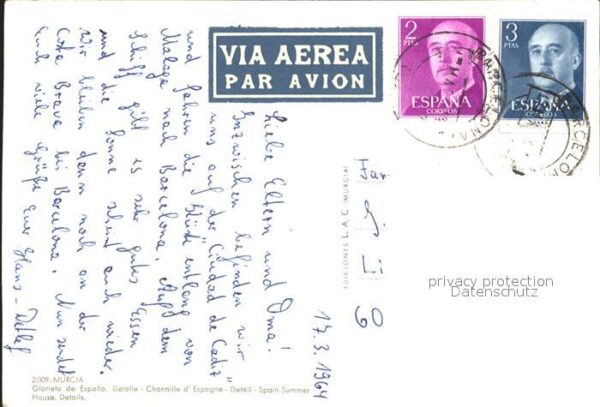 VIA AEREA
PAR AVION
2
PTAS
ESPAÑA
CORREOS
3
PTAS
ESPAÑA
CORREOS
BARCELONA
BARCELONA
17.3.1964
Liebe Eltern und Oma!
Inzwischen befinden wir
uns auf der "Ciudad de Cadiz"
und fahren die Küste entlang von
Malaga nach Barcelona. Auf dem
Schiff gibt es sehr gutes Essen
und die Sonne scheint auch wieder.
Wir bleiben dann noch an der
Costa Brava bei Barcelona. Nun sendet
Euch viele Grüße Euer Hans-Detlef
EDICIONES L. A. C. (MURCIA)
60
privacy protection
Datenschutz
2.009.-MURCIA
Glorieta de España. Detalle - Charmille d' Espagne - Detail - Spain Summer
House. Details.